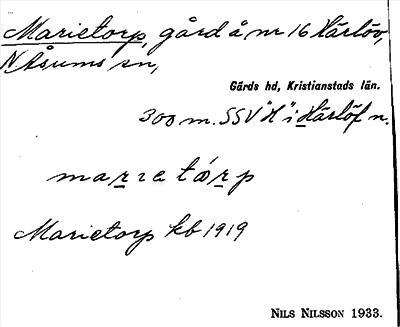 Marietorp, gård å nr 16 Härlöv,
N. Åsums sn,
Gärds hd, Kristianstads län.
300 m. SSV "H" i Härlöf n.
maṟɿetóṟp
Marietorp kb 1919
NILS NILSSON 1933.